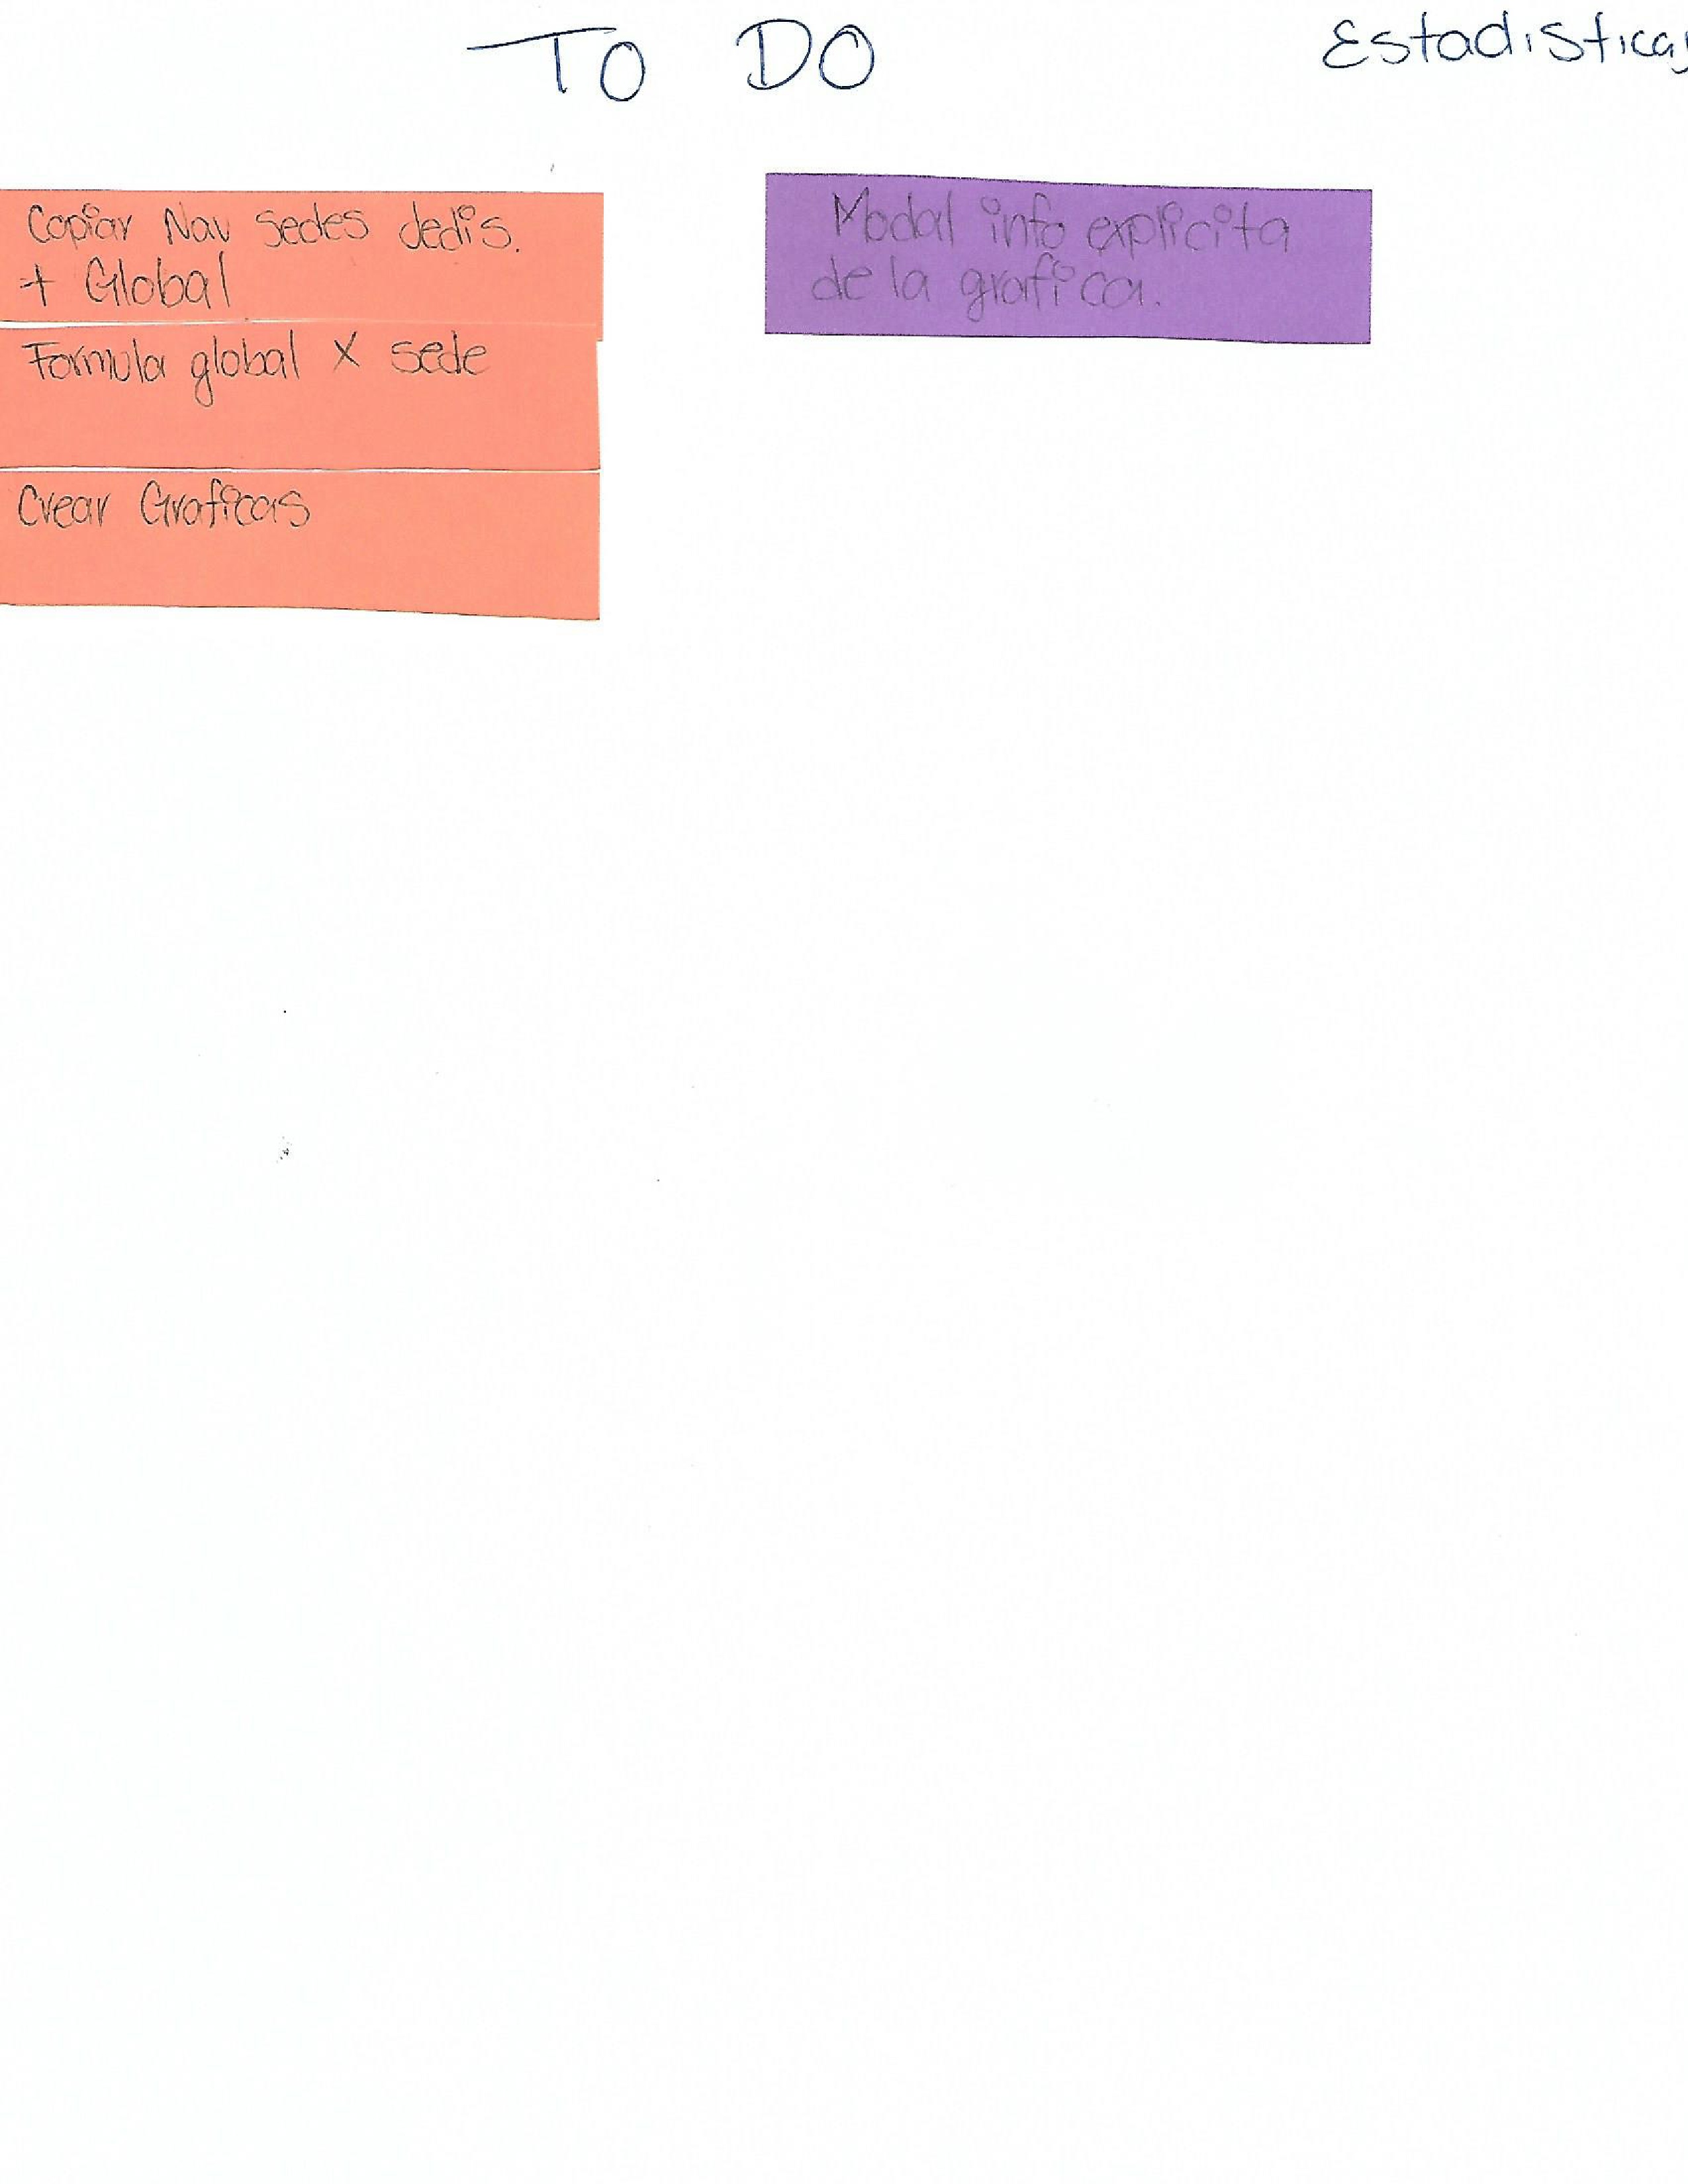 TO DO
Estadisticas
Copiar Nav sedes dedis.
+ Global
Formula global X sede
Crear Graficas
Modal info explicita
de la grafica.